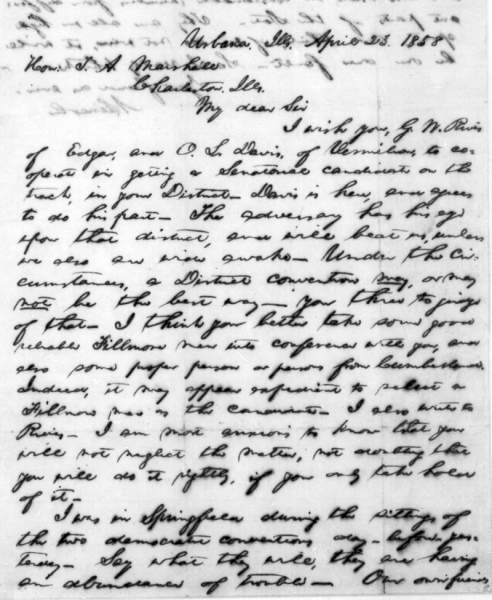 Urbana, Ills. April 23. 1858
Hon. T. A. Marshall
Charleston, Ills.
My dear Sir
I wish you, G. W. Rives
of Edgar, and O. L. Davis, of Vermilion, to co-
operate in getting a Senatorial candidate on the
track, in your District— Davis is here, and agrees
to do his part— The adversary has his eye
upon that district, and will beat us, unless
we also are wide awake— Under the cir-
cumstances, a District convention may, or may
not be the best way— you three to judge
of that— I think you better take some good
reliable Fillmore men into conference with you, and
also some proper person or persons from Cumberland.
Indeed, it may appear expedient to select a
Fillmore man as the candidate— I also write to
Rives— I am most anxious to know that you
will not neglect the matter, not doubting that
you will do it rightly, if you only take hold
of it—
I was in Springfield during the sittings of
the two democratic conventions day-before-yes-
terday— Say what they will, they are having
an abundance of trouble— Our own friends